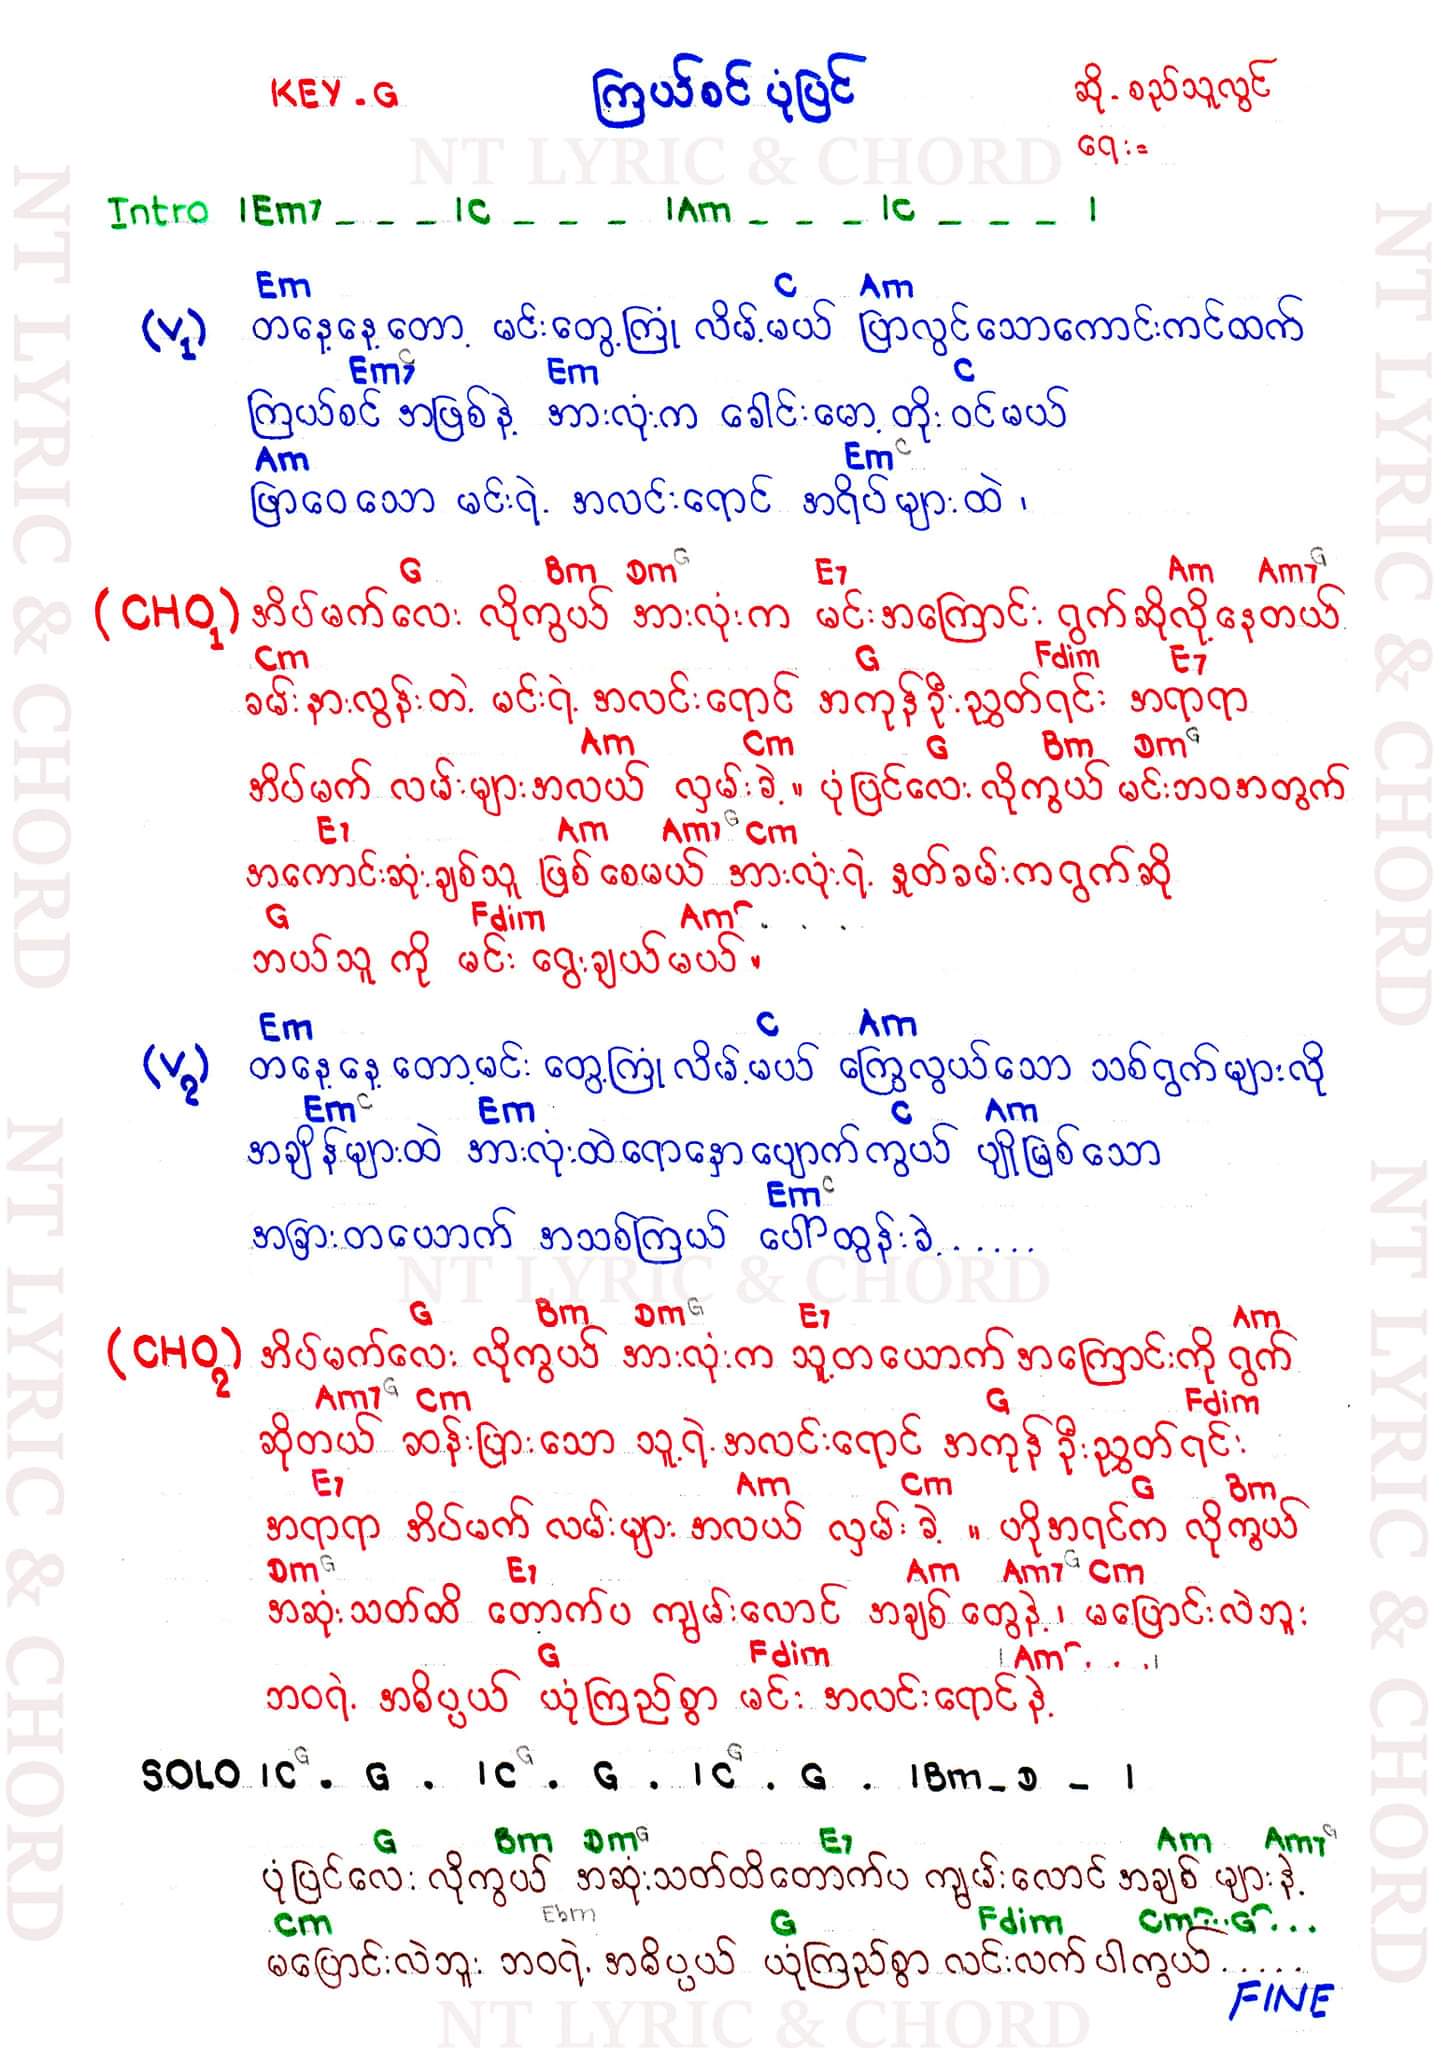 KEY . G ကြယ်စင် ပုံပြင် ဆို . စည်သူလွင်
ရေး =
NT LYRIC & CHORD
Intro |Em7 _ _ _ |C _ _ _ |Am _ _ _ |C _ _ _ |
Em C Am
(V1) တနေ့နေ့တော့ မင်းတွေ့ကြုံ လိမ့်မယ် ပြာလွင်သောကောင်းကင်ထက်
Em7 C Em C
ကြယ်စင် အဖြစ်နဲ့ အားလုံးက ခေါင်းမော့ တိုးဝင်မယ်
Am Em C
ဖြာဝေသော မင်းရဲ့ အလင်းရောင် အရိပ်များထဲ ၊
G Bm Dm G E7 Am Am7 G
(CHO1) အိပ်မက်လေး လိုကွယ် အားလုံးက မင်းအကြောင်း ရွက်ဆိုလို့နေတယ်
Cm G Fdim E7
ခမ်းနားလွန်းတဲ့ မင်းရဲ့ အလင်းရောင် အကုန်ဦးညွှတ်ရင်း အရာရာ
Am Cm G Bm Dm G
အိပ်မက် လမ်းများအလယ် လှမ်းခဲ့ ။ ပုံပြင်လေး လိုကွယ် မင်းဘဝအတွက်
E7 Am Am7 G Cm
အကောင်းဆုံးချစ်သူ ဖြစ်စေမယ် အားလုံးရဲ့ နှုတ်ခမ်းကရွက်ဆို
G Fdim Am . . .
ဘယ်သူ ကို မင်း ရွေးချယ်မယ် ။
Em C Am
(V2) တနေ့နေ့ တော့မင်း တွေ့ကြုံလိမ့်မယ် ကြွေလွယ်သော သစ်ရွက်များလို
Em C Em C Am
အချိန်များထဲ အားလုံးထဲရောနှောပျောက်ကွယ် ပျိုမြစ်သော
Em C
အခြားတယောက် အသစ်ကြယ် ပေါ်ထွန်းခဲ့ . . . . . .
NT LYRIC & CHORD
G Bm Dm G E7 Am
(CHO2) အိပ်မက်လေး လိုကွယ် အားလုံးက သူ့တယောက်အကြောင်းကို ရွက်
Am7 G Cm G Fdim
ဆိုတယ် ဆန်းပြားသော သူ့ရဲ့အလင်းရောင် အကုန်ဦးညွှတ်ရင်း
E7 Am Cm G Bm
အရာရာ အိပ်မက် လမ်းများ အလယ် လှမ်းခဲ့ ။ ဟိုအရင်က လိုကွယ်
Dm G E7 Am Am7 G Cm
အဆုံးသတ်ထိ တောက်ပ ကျွမ်းလောင် အချစ်တွေနဲ့ ၊ မပြောင်းလဲဘူး
G Fdim |Am . . .|
ဘဝရဲ့ အဓိပ္ပယ် ယုံကြည်စွာ မင်း အလင်းရောင်နဲ့
SOLO |C G . G . |C G . G . |C G . G . |Bm _ D _ |
G Bm Dm G E7 Am Am7 G
ပုံပြင်လေး လိုကွယ် အဆုံးသတ်ထိတောက်ပ ကျွမ်းလောင် အချစ်များနဲ့
Cm Ebm G Fdim Cm . . . G . . .
မပြောင်းလဲဘူး ဘဝရဲ့ အဓိပ္ပယ် ယုံကြည်စွာ လင်းလက်ပါကွယ် . . . . .
FINE
NT LYRIC & CHORD
NT LYRIC & CHORD
NT LYRIC & CHORD
NT LYRIC & CHORD
NT LYRIC & CHORD